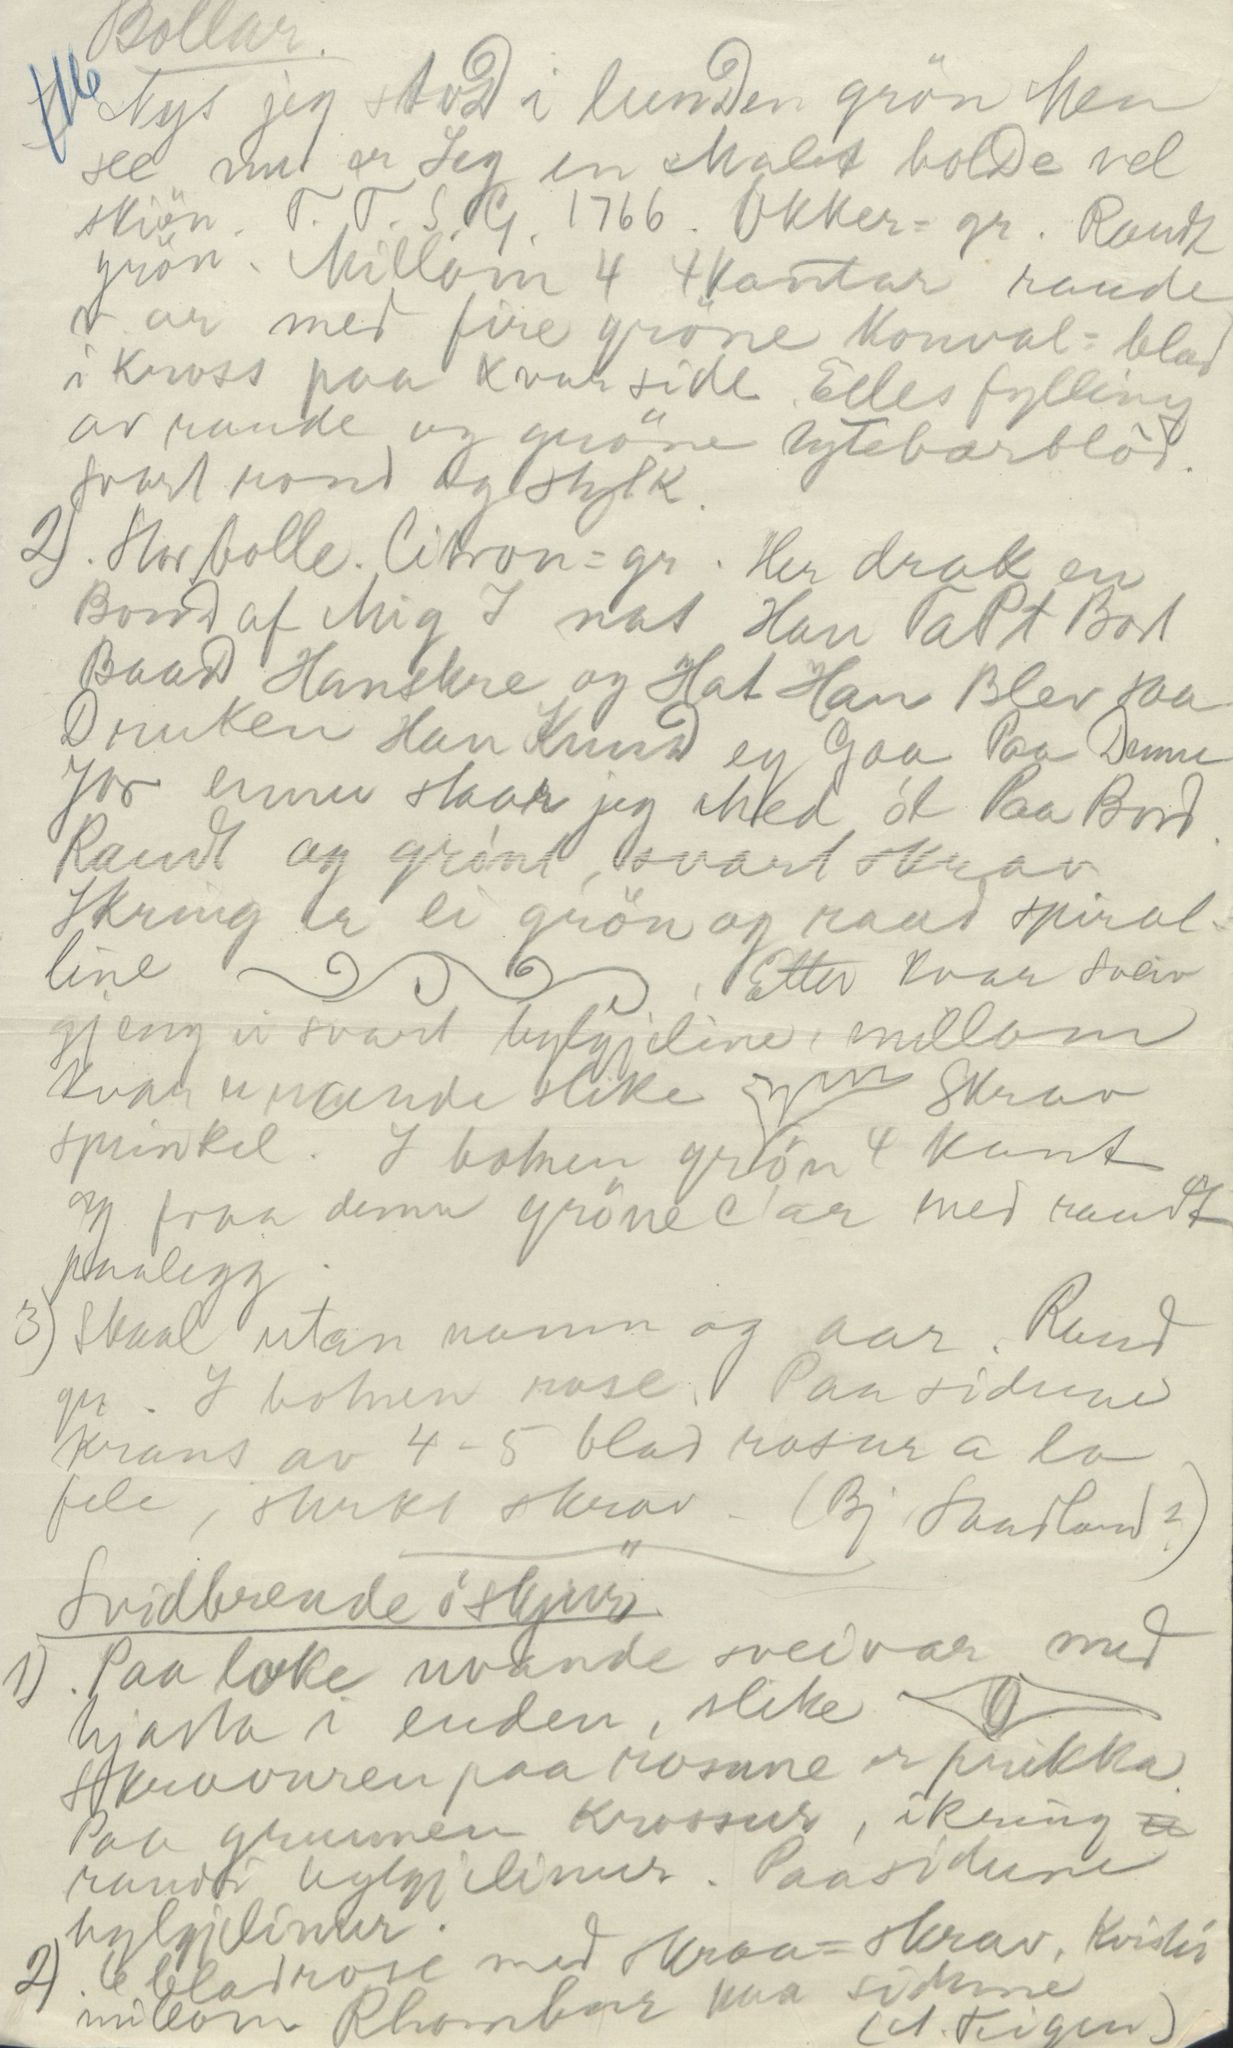 Bollar.
Nys jeg stoD i lunDen grön Men
see nu er Jeg en Malet bolDe vel
skiön. T. T. S. G. 1766. Okker=gr. Raudt
grön. Millom 4 4kantar raude
var med fire gröne Konval=blad
i kross paa kvar side. Elles fylling
av raude og gröne tytebærblöd.
Svart rond og stylk.
2). Stor bolle. Citron=gr. Her drak en
Bond af Mig I nat Han TaPt Bort
BaaD Hanskre og Hat Han Blev saa
Druken Han KunD ey Gaa Paa Denne
Jor ennu staar jeg Med öl Paa Bord.
Raudt og grönt, svart skrav
Ikring er ei grön og raud spiral=
line . Etter kvar sveiv
gjeng ei svart bylgjeline, millom
kvar uvande slike Skrav
sprinkel. I botnen grön 4kant
og fraa denne gröne C'ar med raudt
paalegg.
3) Skaal utan namn og aar. Raud
gr. I botnen rose. Paa sidune
krans av 4-5 blad rosur a la
fele, sterkt skrav. (Bj. Saadland?)
Svidbrende öskjur
1). Paa loke uvande sveivar med
hjarta i enden, slike
Skravuren paa rosune er prikka.
Paa grunnen krossur, ikring
raudt bylgjelinur. Paa sidune
bylgjelinur.
2) 6 bladrose med skraa=skrav. Kvister
millom Rhombur paa sidune
(A. Teigen)